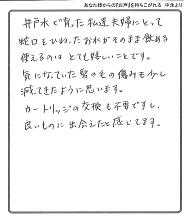 あなた様からの「お声」を待ちこがれる 中央より
井戸水で育った私達夫婦にとって
蛇口をひねったお水がそのまま飲める
使えるのは とても嬉しいことです。
気になっていた髪のその傷みも少し
減ってきたように思います。
カートリッジの交換も不要ですし、
良いものに出会えたと感じてます。